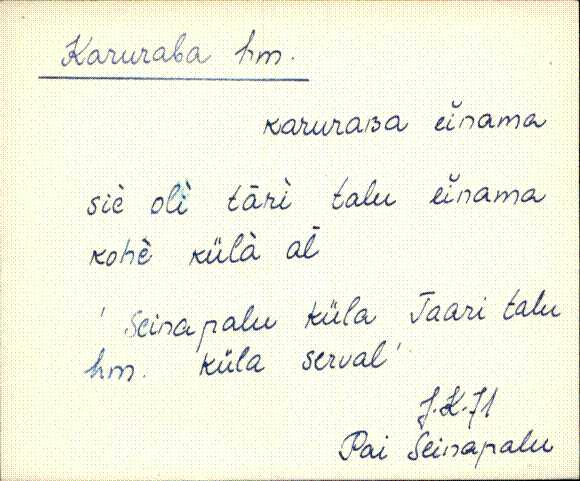 Karuraba hm.
karuraʙa einama
siè olì tārì talu einama
kohè külà al̄
' Seinapalu küla Taari talu
hm. küla serval'
J.K. 71
Pai Seinapalu